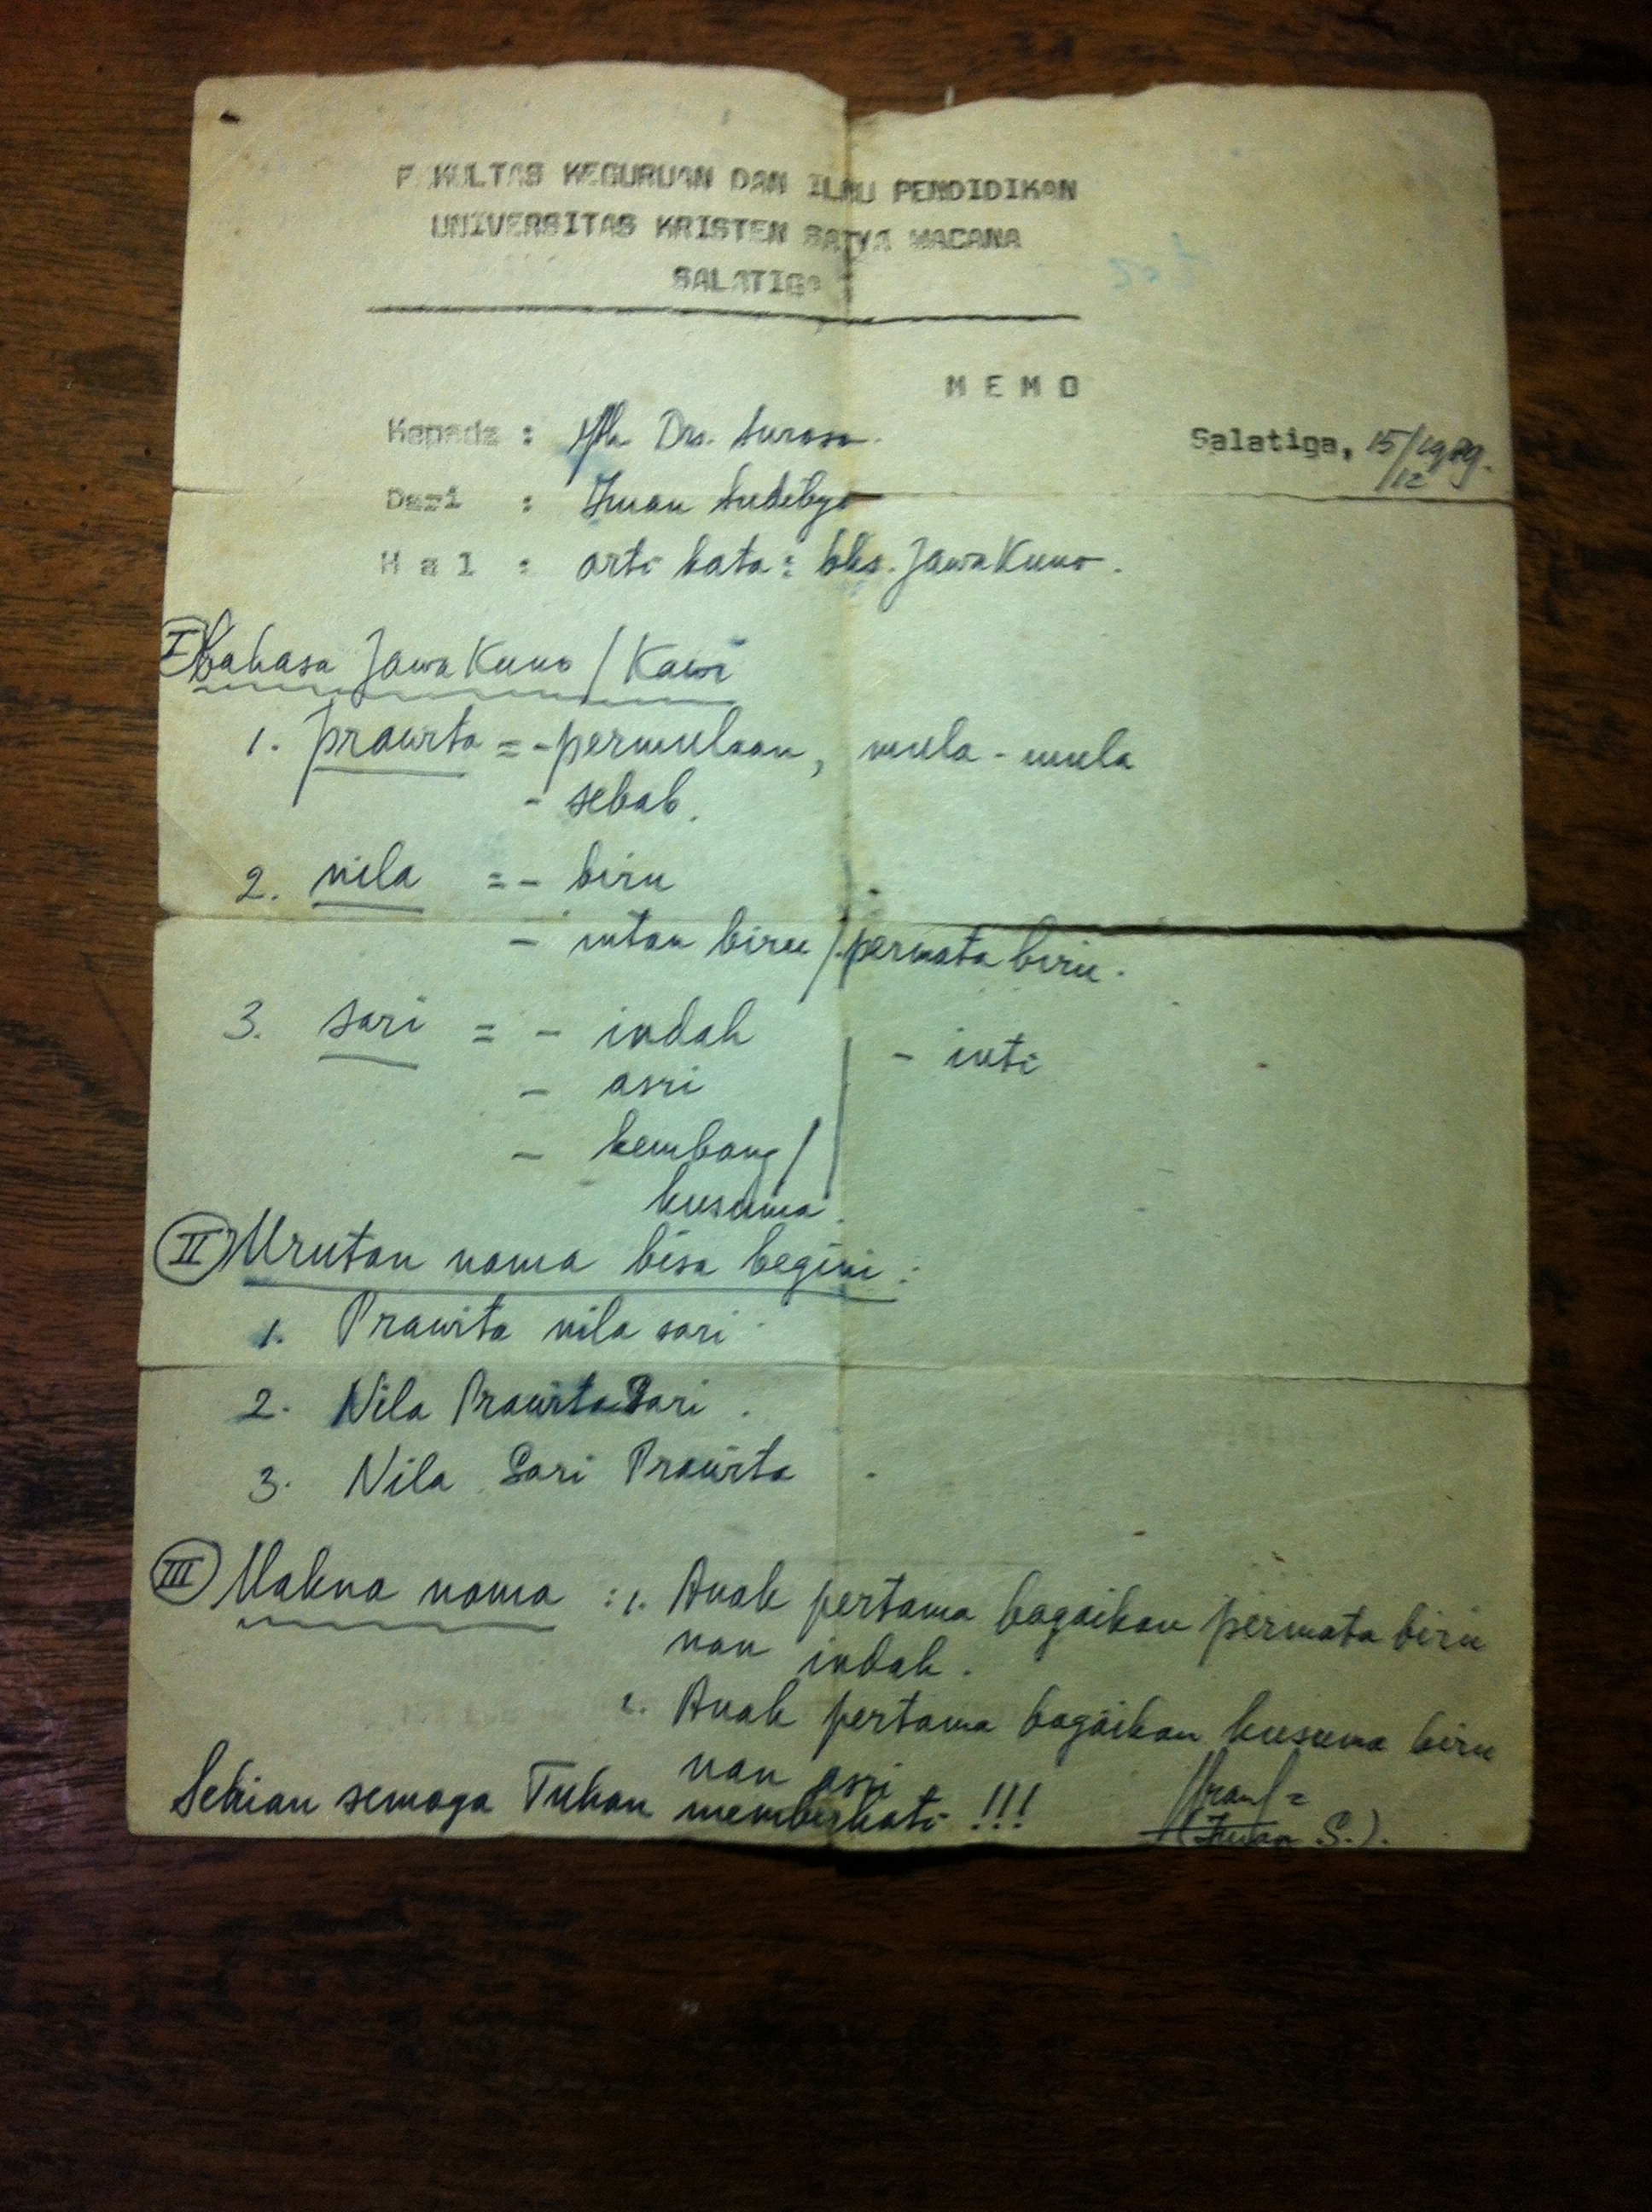 F KULTAS KEGURUAN DAN ILMU PENDIDIKAN
UNIVERSITAS KRISTEN SATYA WACANA
SALATIGA
M E M O
Kepada : Yth Drs. Suroso.
Salatiga, 15/12 1989.
Dari : Iman Sudibyo
H a l : arti kata : bhs. Jawa Kuno.
I Bahasa Jawa Kuno / Kawi
1. prawita = - permulaan, mula - mula
- sebab.
2. nila = - biru
- intan biru / permata biru.
3. sari = - indah | - inti
- asri
- kembang /
kusuma.
II Urutan nama bisa begini :
1. Prawita nila sari
2. Nila Prawita Sari .
3. Nila Sari Prawita .
III Makna nama : 1. Anak pertama bagaikan permata biru
nan indah.
2. Anak pertama bagaikan kusuma biru
nan asri
Sekian semoga Tuhan memberkati !!!
(Iman S.).